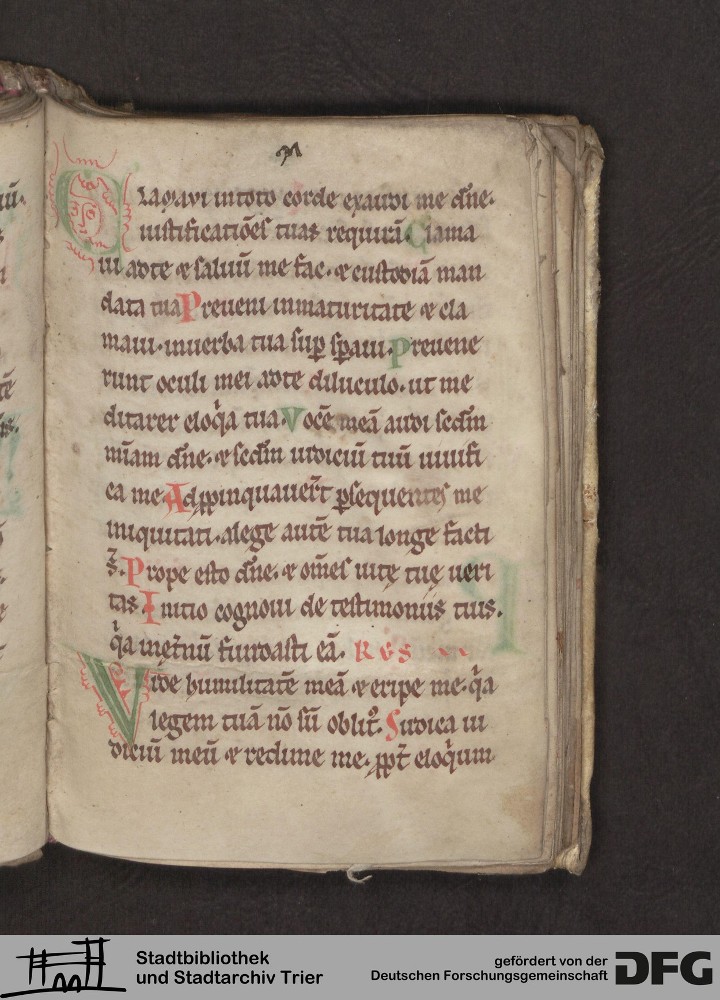 m
Clamavi in toto corde exaudi me dñe·
iustificatiões tuas requirã. Clama
ui ad te & saluũ me fac. & custodiã man
data tua Preueni in maturitate & cla
maui. in uerba tua sup̱ sp̱aui. Preuene
runt oculi mei ad te diluculo. ut me
ditarer eloq̃a tua. Vocẽ meã audi scd̃m
mĩam dñe. & scd̃m iudiciũ tuũ uiuifi
ca me. Adp̱pinquauer̃t p̱sequentes me
iniquitati. a lege autẽ tua longe facti
s̃. Prope esto dñe. & om̃es uitę tuę ueri
tas. Initio cognoui de testimoniis tuis.
q̃a in et̃nũ fundasti eã.
Vide humilitatẽ meã & eripe me. q̃a
legem tuã nõ sũ oblit⁹. Iudica iu
diciũ meũ & redime me. p̱pt̃ eloq̃um
Stadtbibliothek
und Stadtarchiv Trier
gefördert von der
Deutschen Forschungsgemeinschaft
DFG